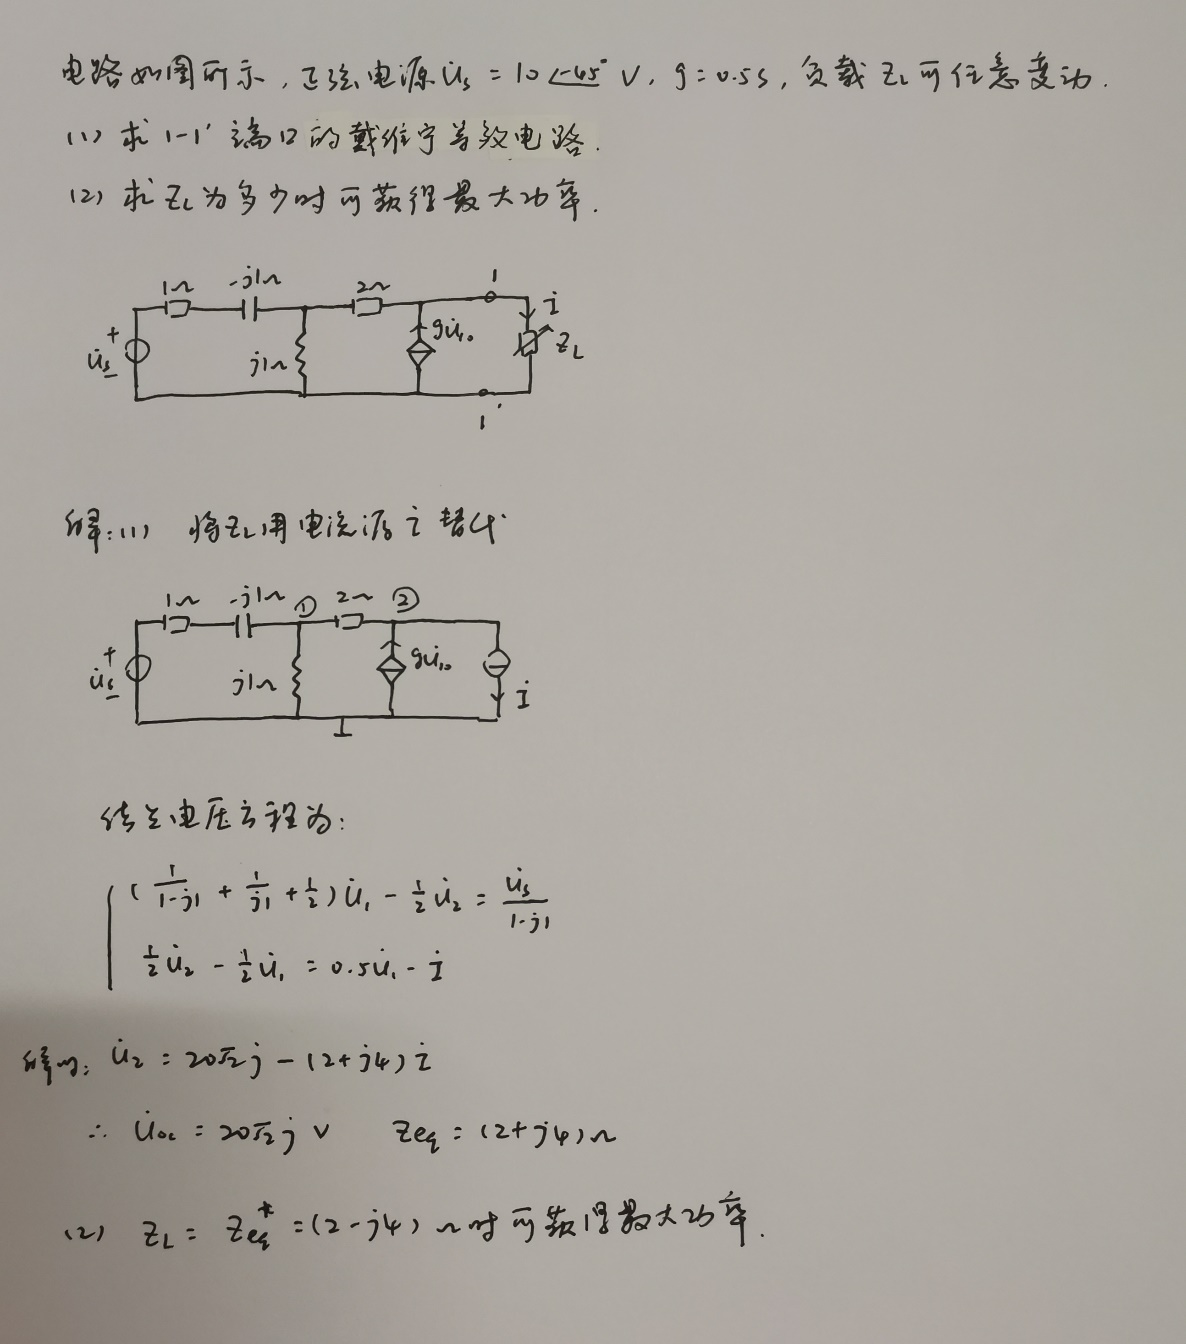 电路如图所示,正弦电源 U̇s = 10∠-45° V, g = 0.5s, 负载 ZL 可任意变动.
(1) 求 1-1' 端口的戴维宁等效电路.
(2) 求 ZL 为多少时可获得最大功率.
1Ω -j1Ω 2Ω 1
+ U̇s - j1Ω gU̇10 İ ZL
1'
解:(1) 将ZL用电流源 İ 替代
1Ω -j1Ω ① 2Ω ②
+ U̇s - j1Ω gU̇10 İ
结点电压方程为:
(1/(1-j1) + 1/j1 + 1/2) U̇1 - 1/2 U̇2 = U̇s/(1-j1)
1/2 U̇2 - 1/2 U̇1 = 0.5U̇1 - İ
解得: U̇2 = 20√2 j - (2+j4) İ
∴ U̇oc = 20√2 j V Zeq = (2+j4) Ω
(2) ZL = Zeq* = (2-j4) Ω 时可获得最大功率.